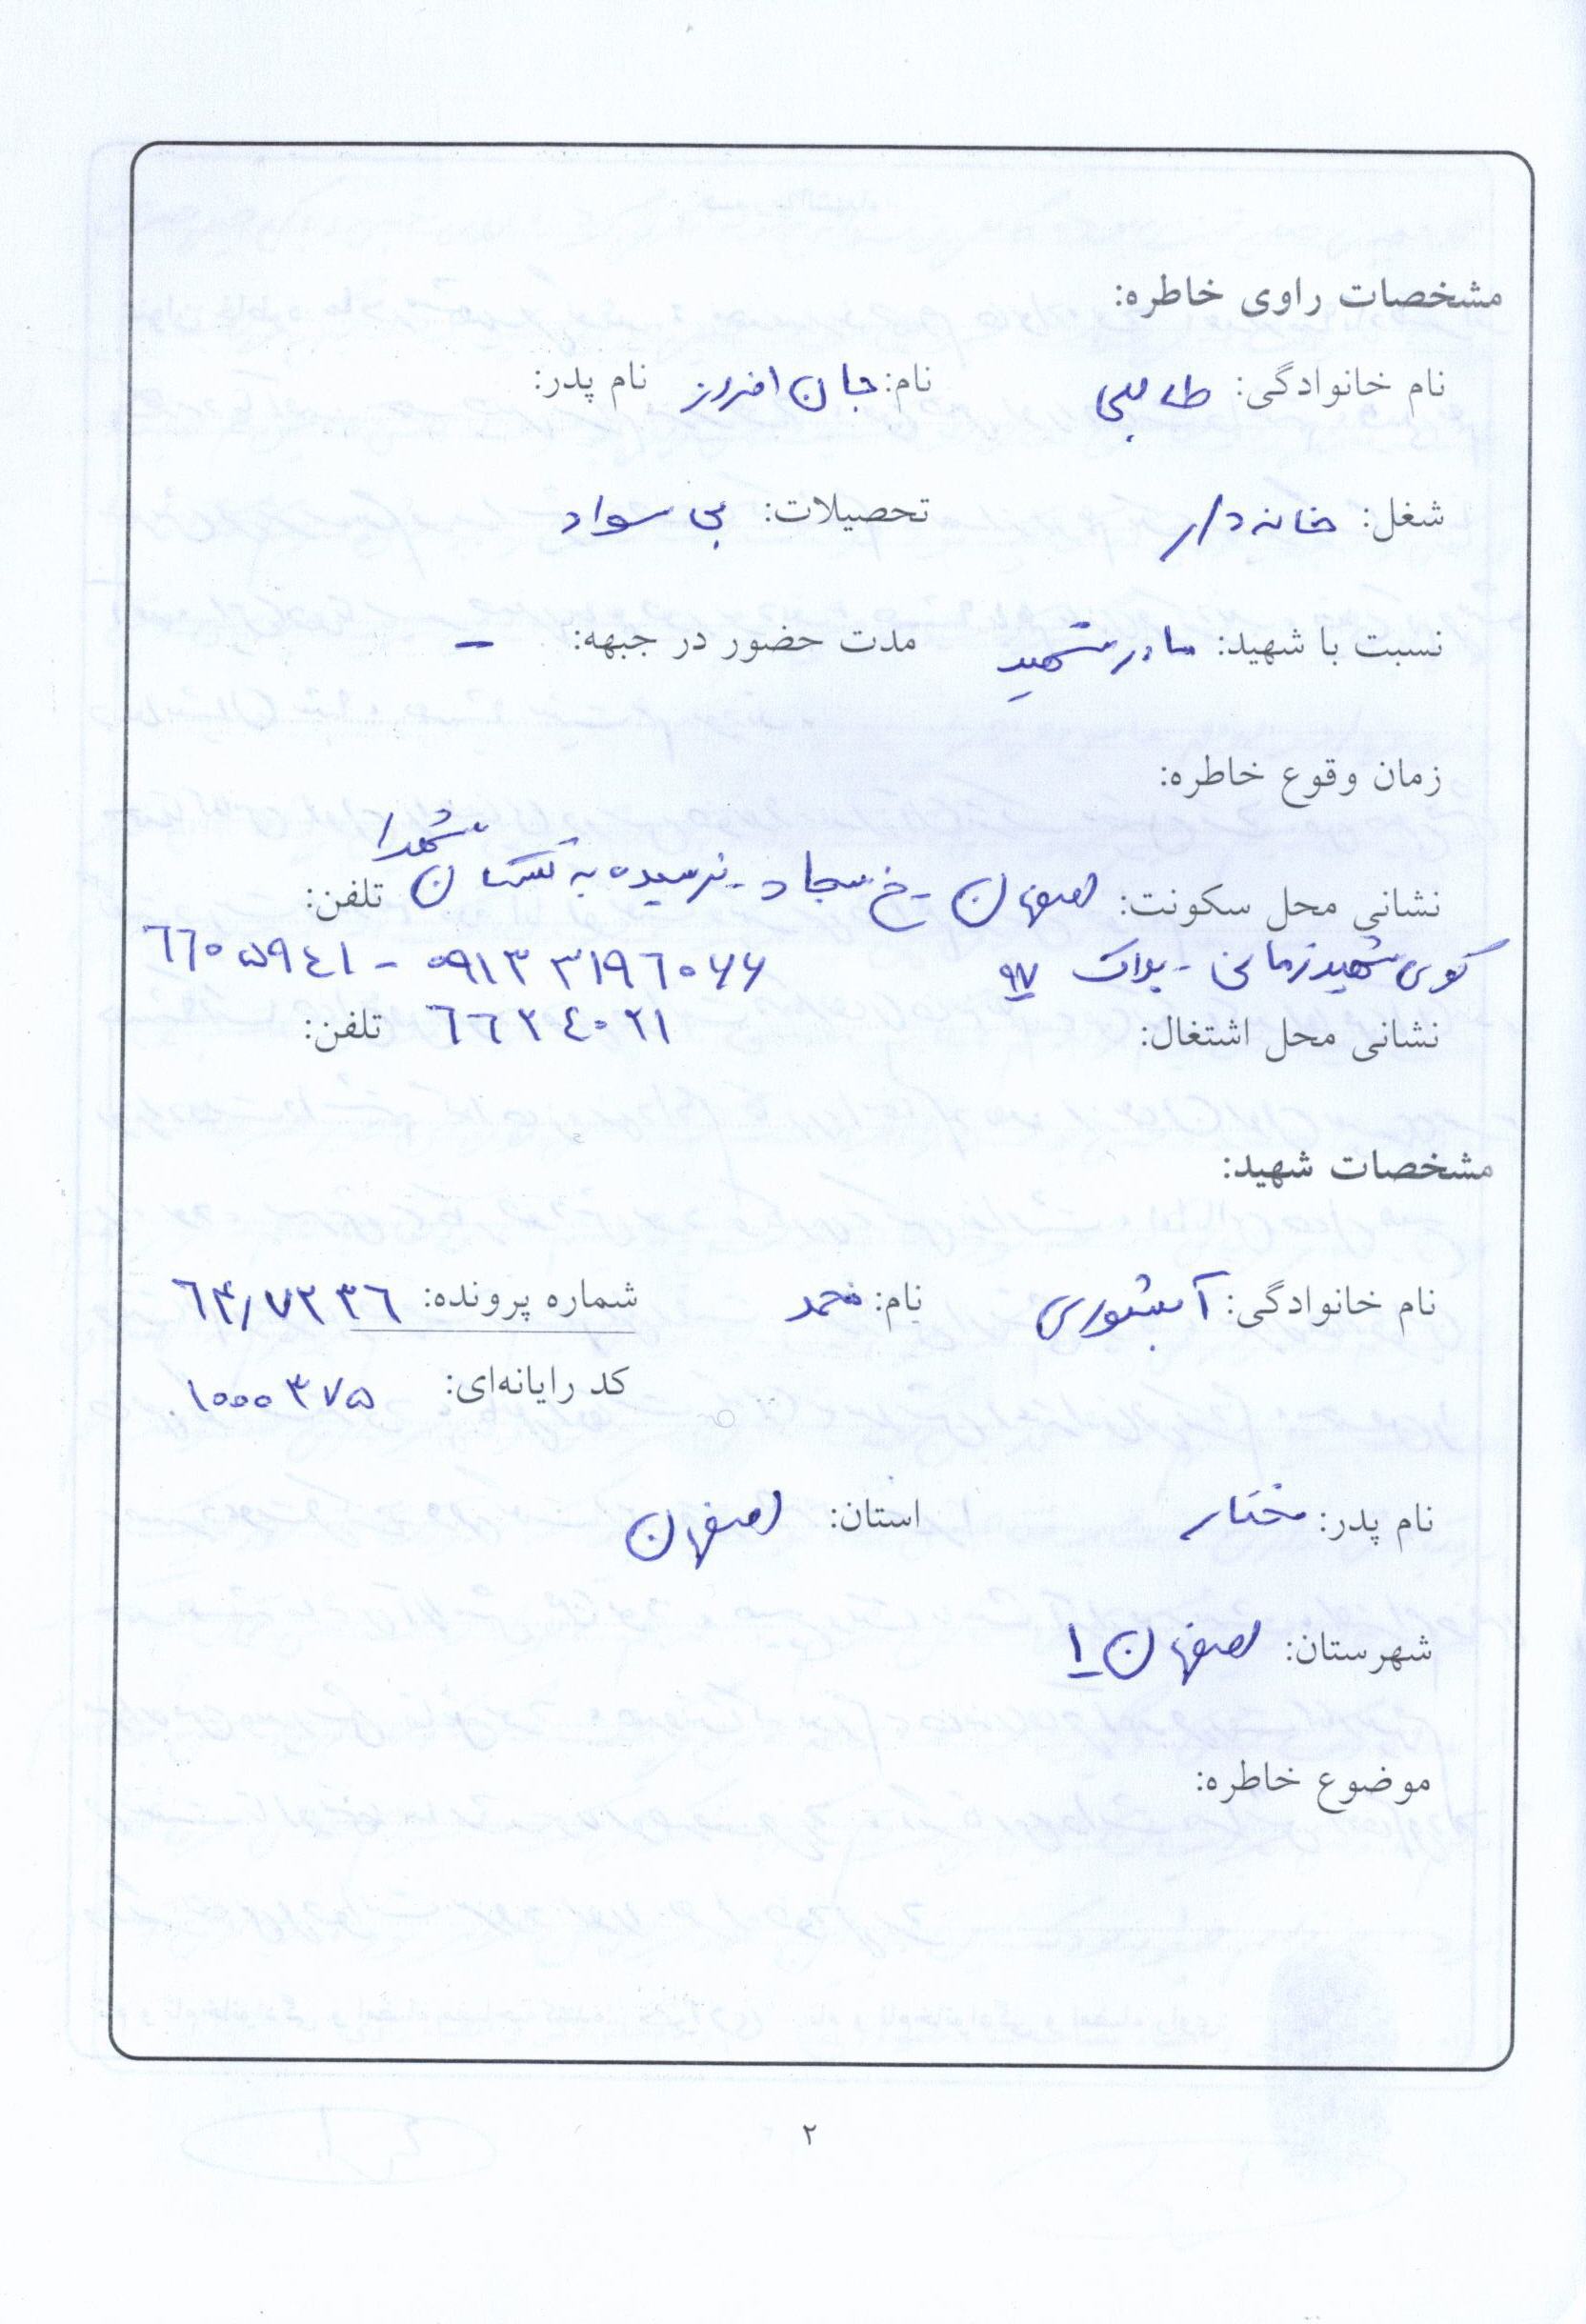 مشخصات راوی خاطره:
نام خانوادگی: طالبی نام: جان افروز نام پدر:
شغل: خانه دار تحصیلات: بی سواد
نسبت با شهید: مادر شهید مدت حضور در جبهه: –
زمان وقوع خاطره:
نشانی محل سکونت: اصفهان - خ سجاد - نرسیده به گلستان شهدا تلفن:
کوی شهید زمانی - پلاک ۹۷ ۰۹۱۳۳۱۹۶۰۶۶ - ۶۶۰۵۹۴۱
نشانی محل اشتغال: ۶۶۲۴۰۲۱ تلفن:
مشخصات شهید:
نام خانوادگی: آبشوری نام: محمد شماره پرونده: ۶۴/۷۲۳۶
کد رایانه‌ای: ۱۰۰۰۳۷۵
نام پدر: مختار استان: اصفهان
شهرستان: اصفهان ۱
موضوع خاطره:
۲